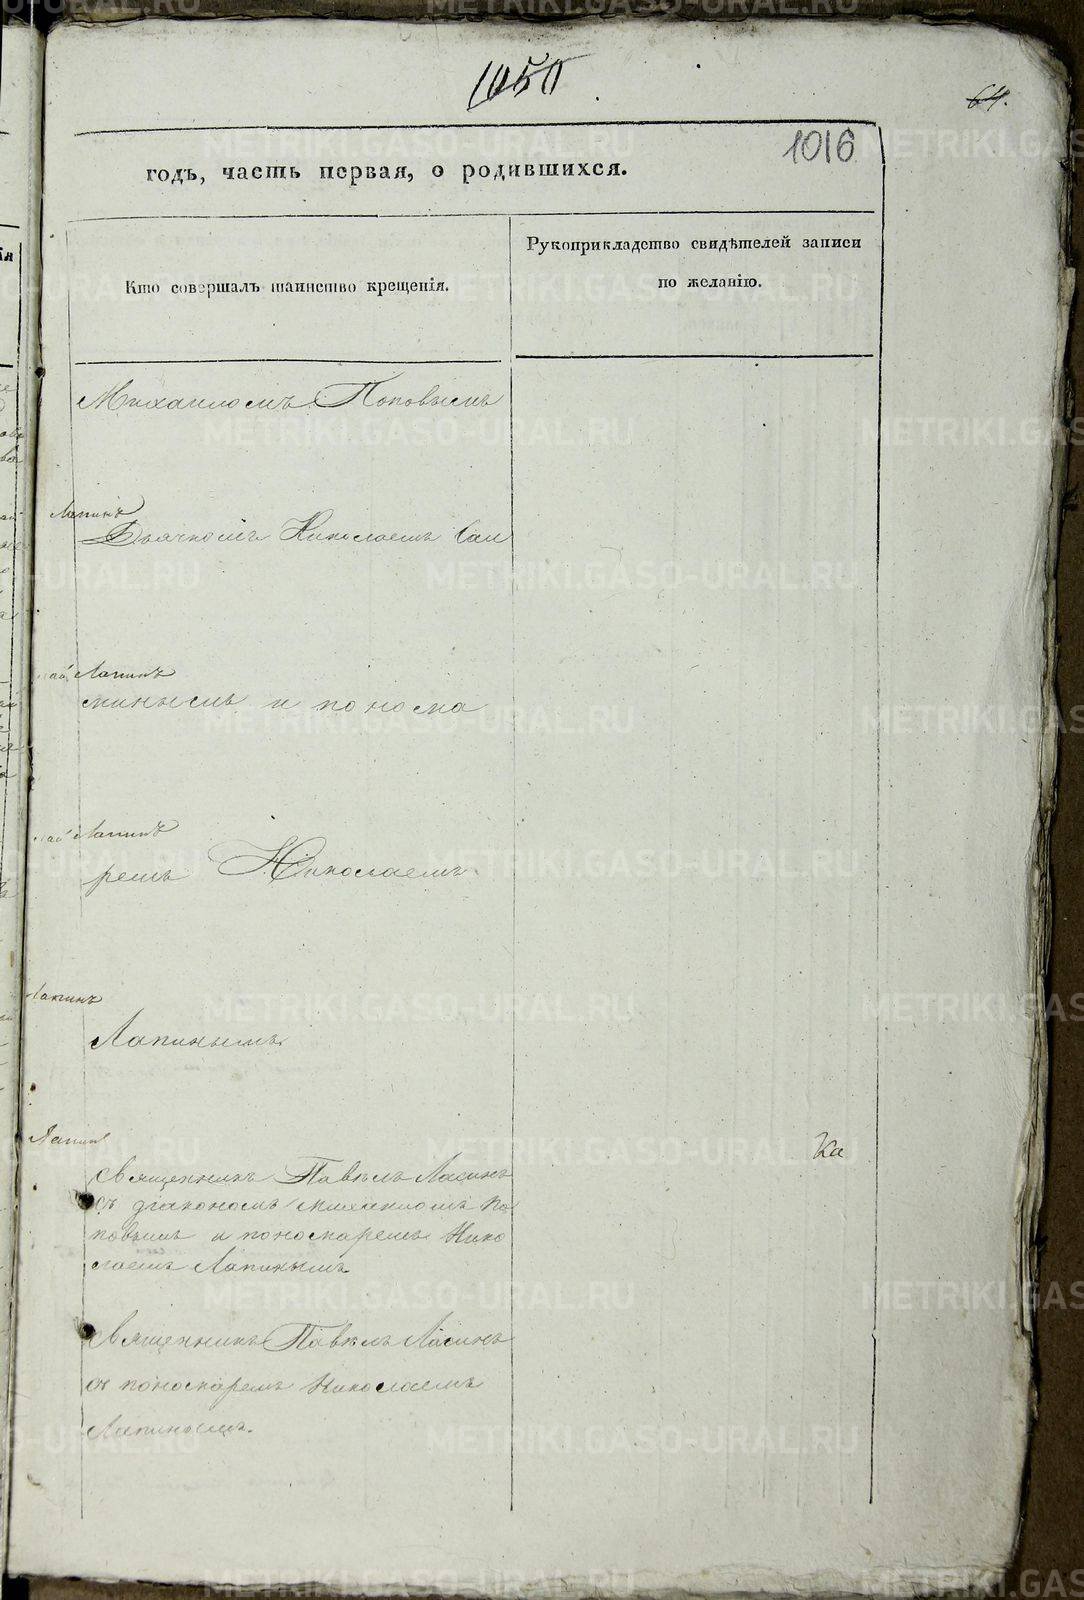 1050
64.
1016
годъ, часть первая, о родившихся.
Кто совершалъ таинство крещенія.
Рукоприкладство свидѣтелей записи
по желанію.
Михаиломъ Поповымъ
Лапинъ
Дьячкомъ Николаемъ Сап
Лапинъ
и понома
Лапинъ
ремъ Николаемъ
Лапинъ
Лапинымъ
Лапинъ
Ка
Священникъ Павелъ
съ діакономъ Михаиломъ По
повымъ и пономаремъ Нико
лаемъ Лапинымъ
Священникъ Павелъ
съ пономаремъ Николаемъ
Лапинымъ.
METRIKI.GASO-URAL.RU